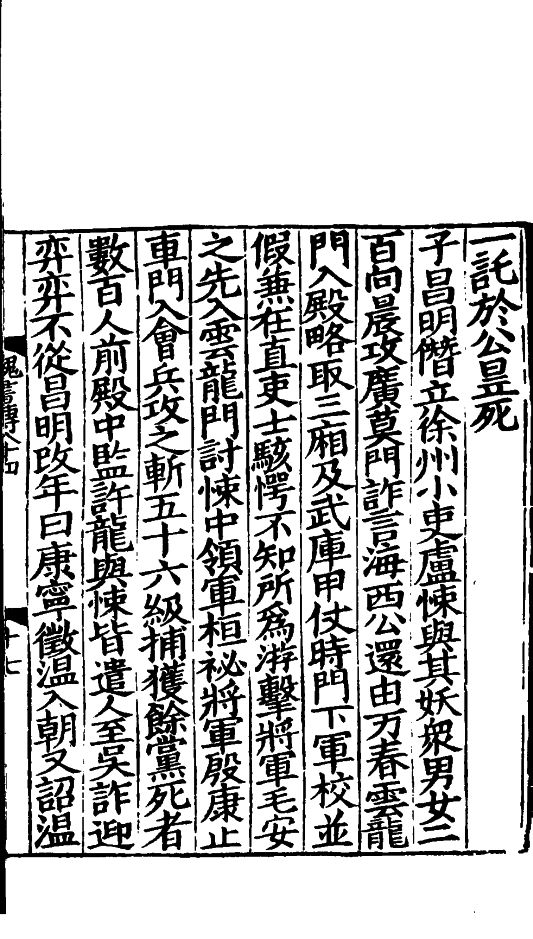 一託於公昱死
子昌明僭立徐州小吏盧悚與其妖衆男女二
百向晨攻廣莫門詐言海西公還由万春雲龍
門入殿略取三廂及武庫甲仗時門下軍校並
假兼在直吏士駭愕不知所為游擊將軍毛安
之先入雲龍門討悚中領軍桓祕將軍殷康止
車門入會兵攻之斬五十六級捕獲餘黨死者
數百人前殿中監許龍與悚皆遣人至吳詐迎
弈弈不從昌明改年曰康寧徵温入朝又詔温
魏書傳八十四
十七